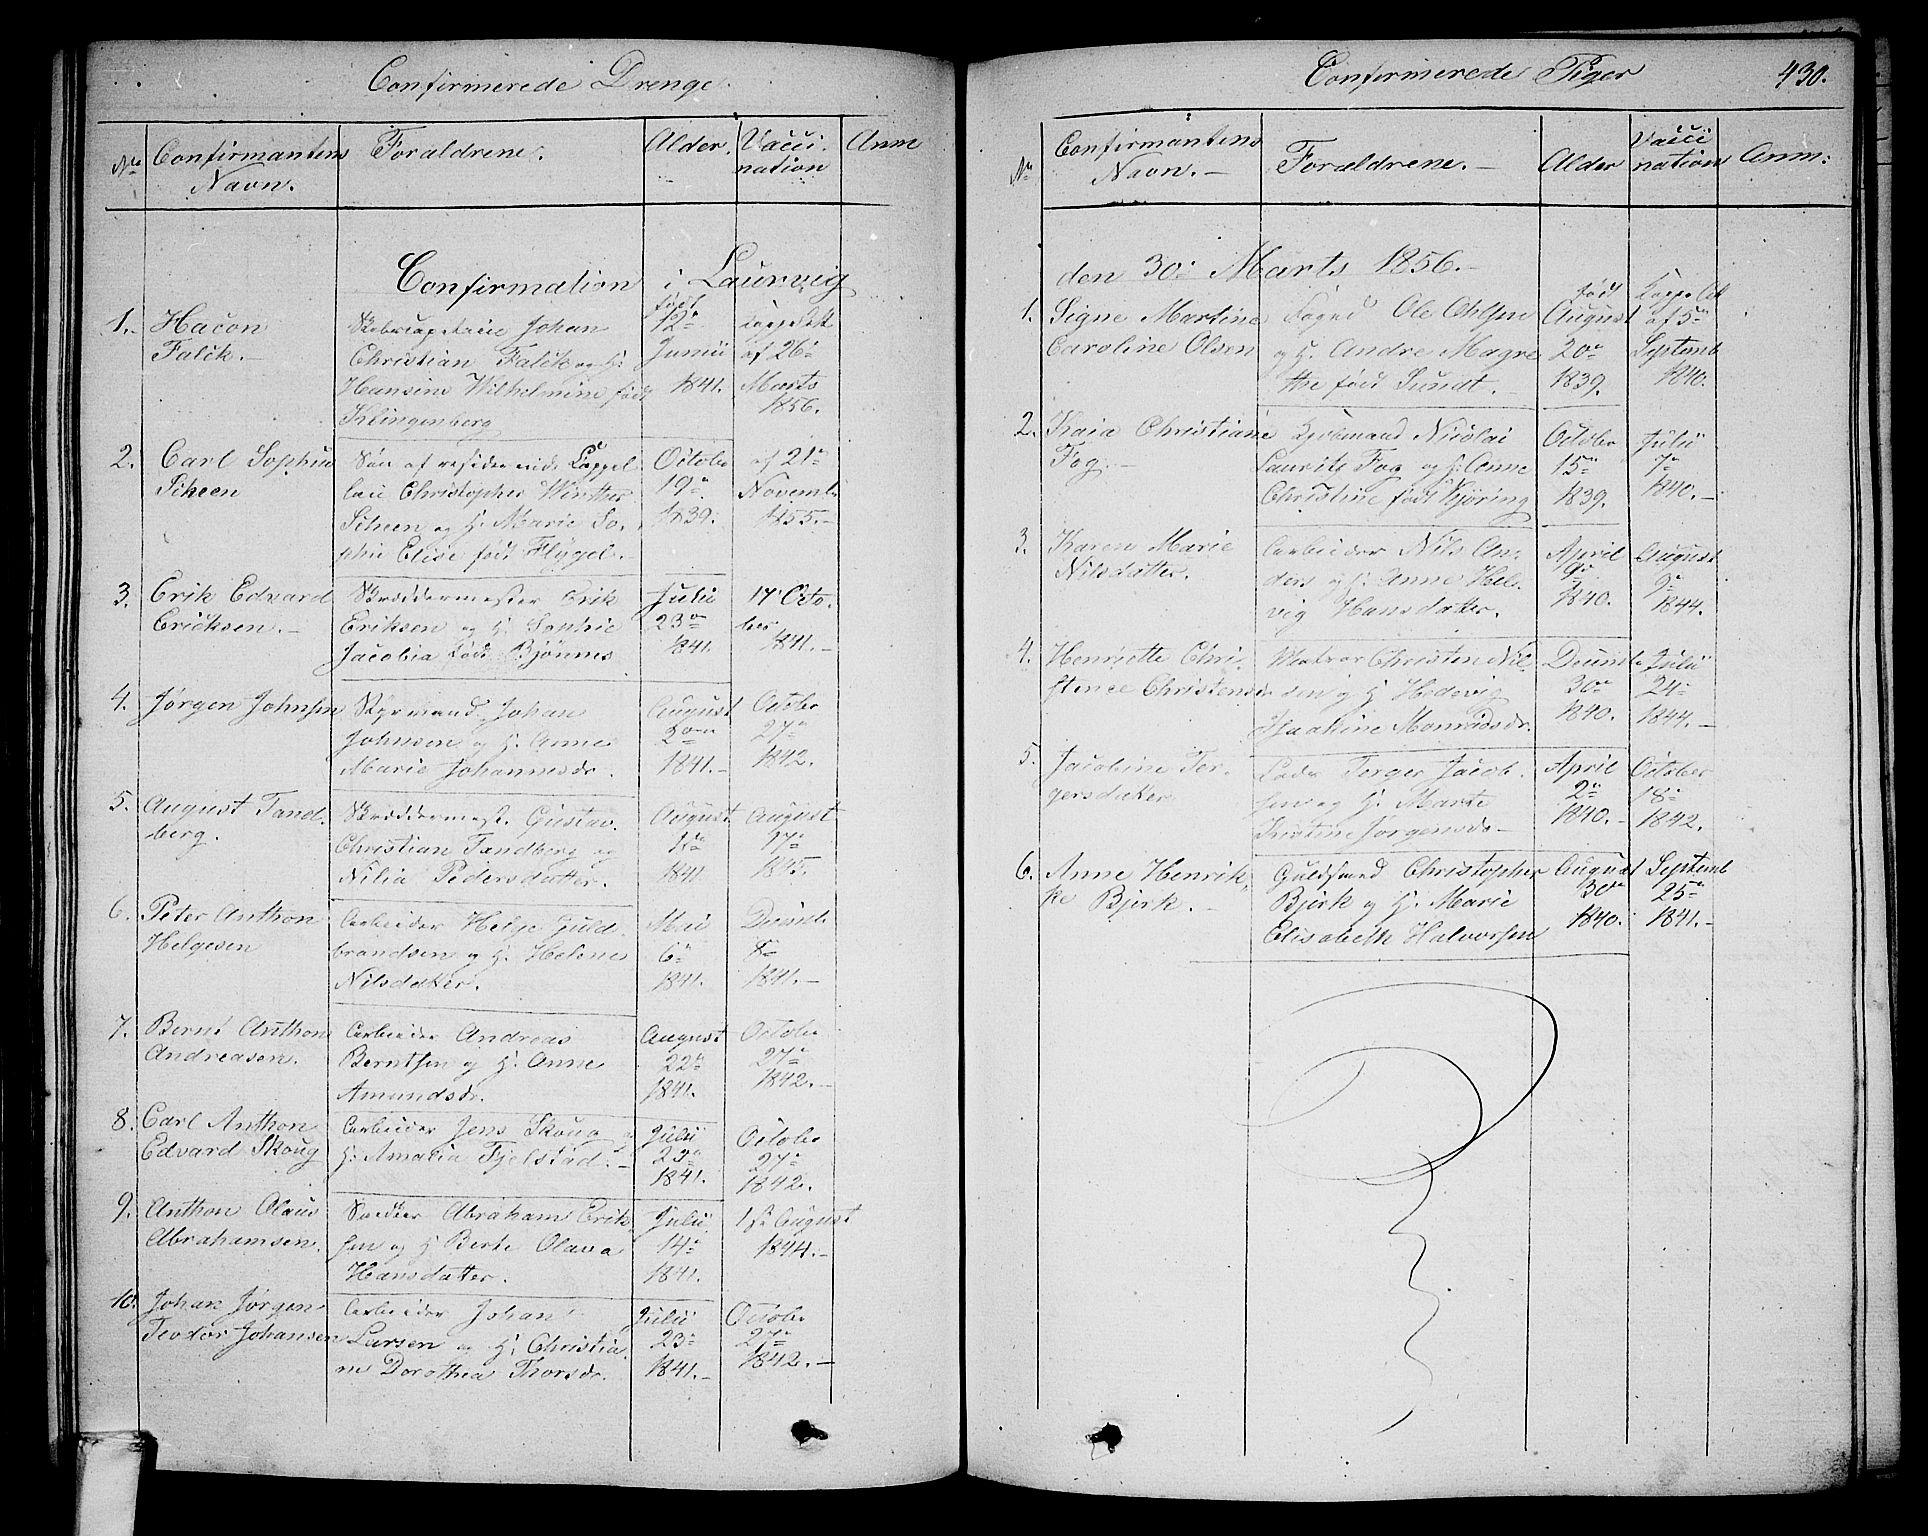 Confirmerede Drenge.
No Confirmantens Navn. Forældrene. Alder. Vacci-nation Anm
Confirmation i Laurvig
1. Hacon Falck.
Johan
Christian Falck og H:
Hansine Wilhelmine født
Klingenberg
født
12te
Junii
1841.
af 26de
Marts
1856.
2. Carl Sophus
Scheen
Søn af residerende Cappel
lan Christopher Winther
Scheen og H: Marie So-
phie Elise født Flygel.
Octobr
19de
1839.
af 21de
Novembr
1855.
3. Erik Edvard
Ericksen.
Skræddermester Erik
Eriksen og H: Sophie
Jacobia født Bjønnes
Julii
23de
1841.
17 Octo-
ber
1841.
4. Jørgen Johnsen
Styrmand Johan
Johnsen og H: Anne
Marie Johannesdr.
August
1841.
Octobr
27de
1842.
5. August Tand-
berg.
Skræddermestr Gustav
Christian Tandberg og
Nilia Pedersdatter.
August
1ste
1841
August
17de
1845.
6. Peter Anthon
Helgesen
Arbeider Helge Guld-
brandsen og H: Helene
Nilsdatter.
Mai
6te
1841.
Decembr
8de
1841.
7. Bernt Anthon
Andreasen.
Arbeider Andreas
Berntsen og H: Anne
Amundsdr.
August
22de
1841.
Octobr
27de
1842.
8. Carl Anthon
Edvard Skoug
Arbeider Jens Skoug og
H: Amalia Fjelstad.
Julii
23de
1841.
Octobr
27de
1842.
9. Anthon Olaus
Abrahamsen.
Abraham Erik-
sen og H: Berte Olava
Hansdatter.
Julii
14de
1841.
1ste August
1844.
10. Johan Jørgen
Teodor Johansen
Arbeider Johan
Larsen og H: Christia-
ne Dorothea Thorsdr.
Julii
23de
1841.
Octobr
27de
1842.
Confirmerede Piger 430.
No Confirmantens Navn. Forældrene. Alder Vacci-nation Anm:
den 30: Marts 1856.
1. Signe Martine
Caroline Olsen
Foged Ole Ohlsen
og H. Andre Magre
the født Sundt.
født
August
20de
1839.
af 5te
Septemb
1840.
2. Kaia Christiane
Fog.
Kjøbmand Nicolai
Laurits Fog og H: Anne
Christine født Kjøring
Octobr
15de
1839.
Julii
7de
1840.
3. Karen Marie
Nilsdatter.
Arbeider Nils An-
ders og H: Anne Hel-
vig Hansdatter.
April
9de
1840.
August
9de
1844.
4. Henriette Chri-
stence Christensdr
Matros Christen Nil-
sen og H Hedevig
Joachine Monradsdr.
Decembr
30te
1840.
Julii
24de
1844.
5. Jacobine Ter-
gersdatter
Lods Terger Jacob-
sen og H: Marte
Kristine Jørgensdr
April
2de
1840.
October
18de
1842.
6. Anne Henrik-
ke Bjerk.
Guldsmed Christopher
Bjerk og H: Marie
Elisabeth Halvorsen
August
30te
1840.
Septemb
25de
1841.